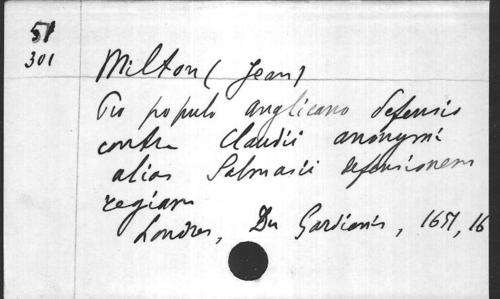 51
301
Milton (Jean)
Pro populo anglicano defensio
contra Claudii anonymi
alias Salmasii defensionem
regiam
Londres, Du Gardianis, 1651, 16